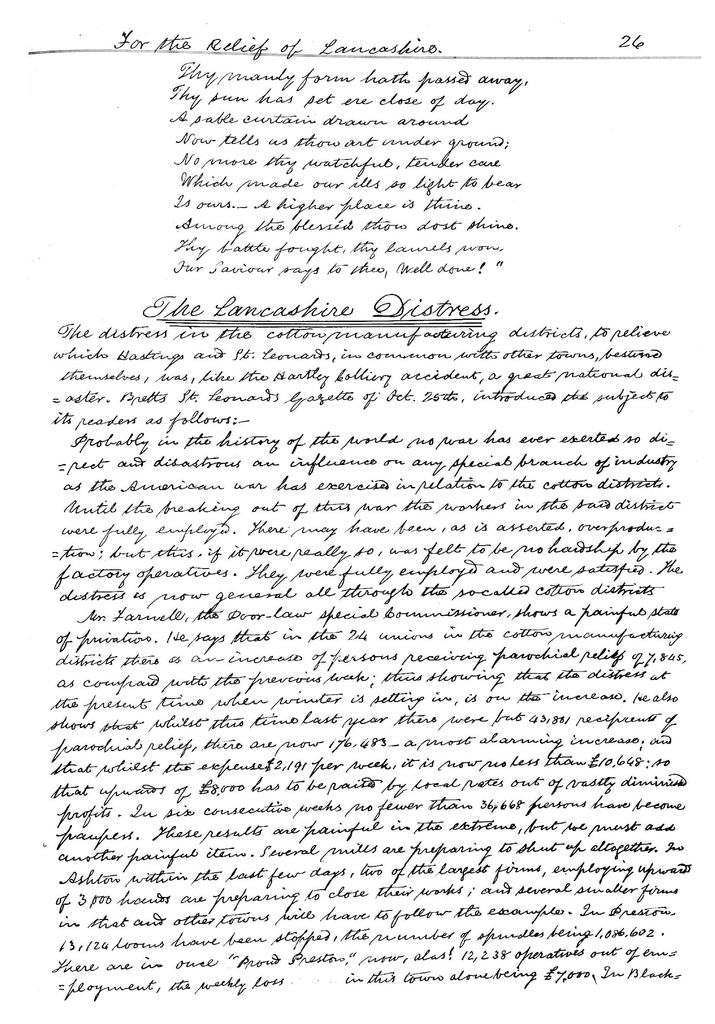 For the Relief of Lancashire. 26
Thy manly form hath passed away,
Thy sun has set ere close of day.
A sable curtain drawn around
Now tells us thou art under ground;
No more thy watchful, tender care
Which made our ills so light to bear
Is ours. — A higher place is thine.
Among the blessed thou dost shine.
Thy battle fought, thy laurels won,
Our Saviour says to thee, Well done! "
The Lancashire Distress.
The distress in the cotton manufacturing districts, to relieve
which Hastings and St. Leonards, in common with other towns, bestired
themselves, was, like the Hartley Colliery accident, a great national dis=
=aster. Bretts St. Leonards Gazette of Oct. 25th, introduced the subject to
its readers as follows:—
Probably in the history of the world no war has ever exerted so di=
=rect and disastrous an influence on any special branch of industry
as the American war has exercised in relation to the cotton districts.
Until the breaking out of this war the workers in the said district
were fully employed. There may have been, as is asserted, overproduc=
=tion; but this, if it were really so, was felt to be no hardship by the
factory operatives. They were fully employed and were satisfied. The
distress is now general all through the so called cotton districts
Mr. Farnell, the Poor-law special Commissioner, shows a painful state
of privation. He says that in the 24 unions in the cotton manufacturing
districts there is an increase of persons receiving parochial relief of 7,845,
as compaid with the previous week; thus showing that the distress at
the present time when winter is setting in, is on the increase. He also
shows that whilst this time last year there were but 43,881 recipients of
parochial relief, there are now 176,483 — a most alarming increase; and
that whilst the expense £2,191 per week, it is now no less than £10,648; so
that upwards of £8,000 has to be raised by local rates out of vastly diminised
profits. In six consecutive weeks no fewer than 36,668 persons have become
paupers. These results are painful in the extreme, but we must add
another painful item. Several mills are preparing to shut up altogether. In
Ashton within the last few days, two of the largest firms, employing upward
of 3,000 hands are preparing to close their works; and several smaller firms
in that and other towns will have to follow the example. In Preston
13,124 looms have been stopped, the number of spindles being 1,086,602.
There are in once "Proud Preston," now, alas! 12,238 operatives out of em=
=ployment, the weekly loss in this town alone being £7,000. In Black=